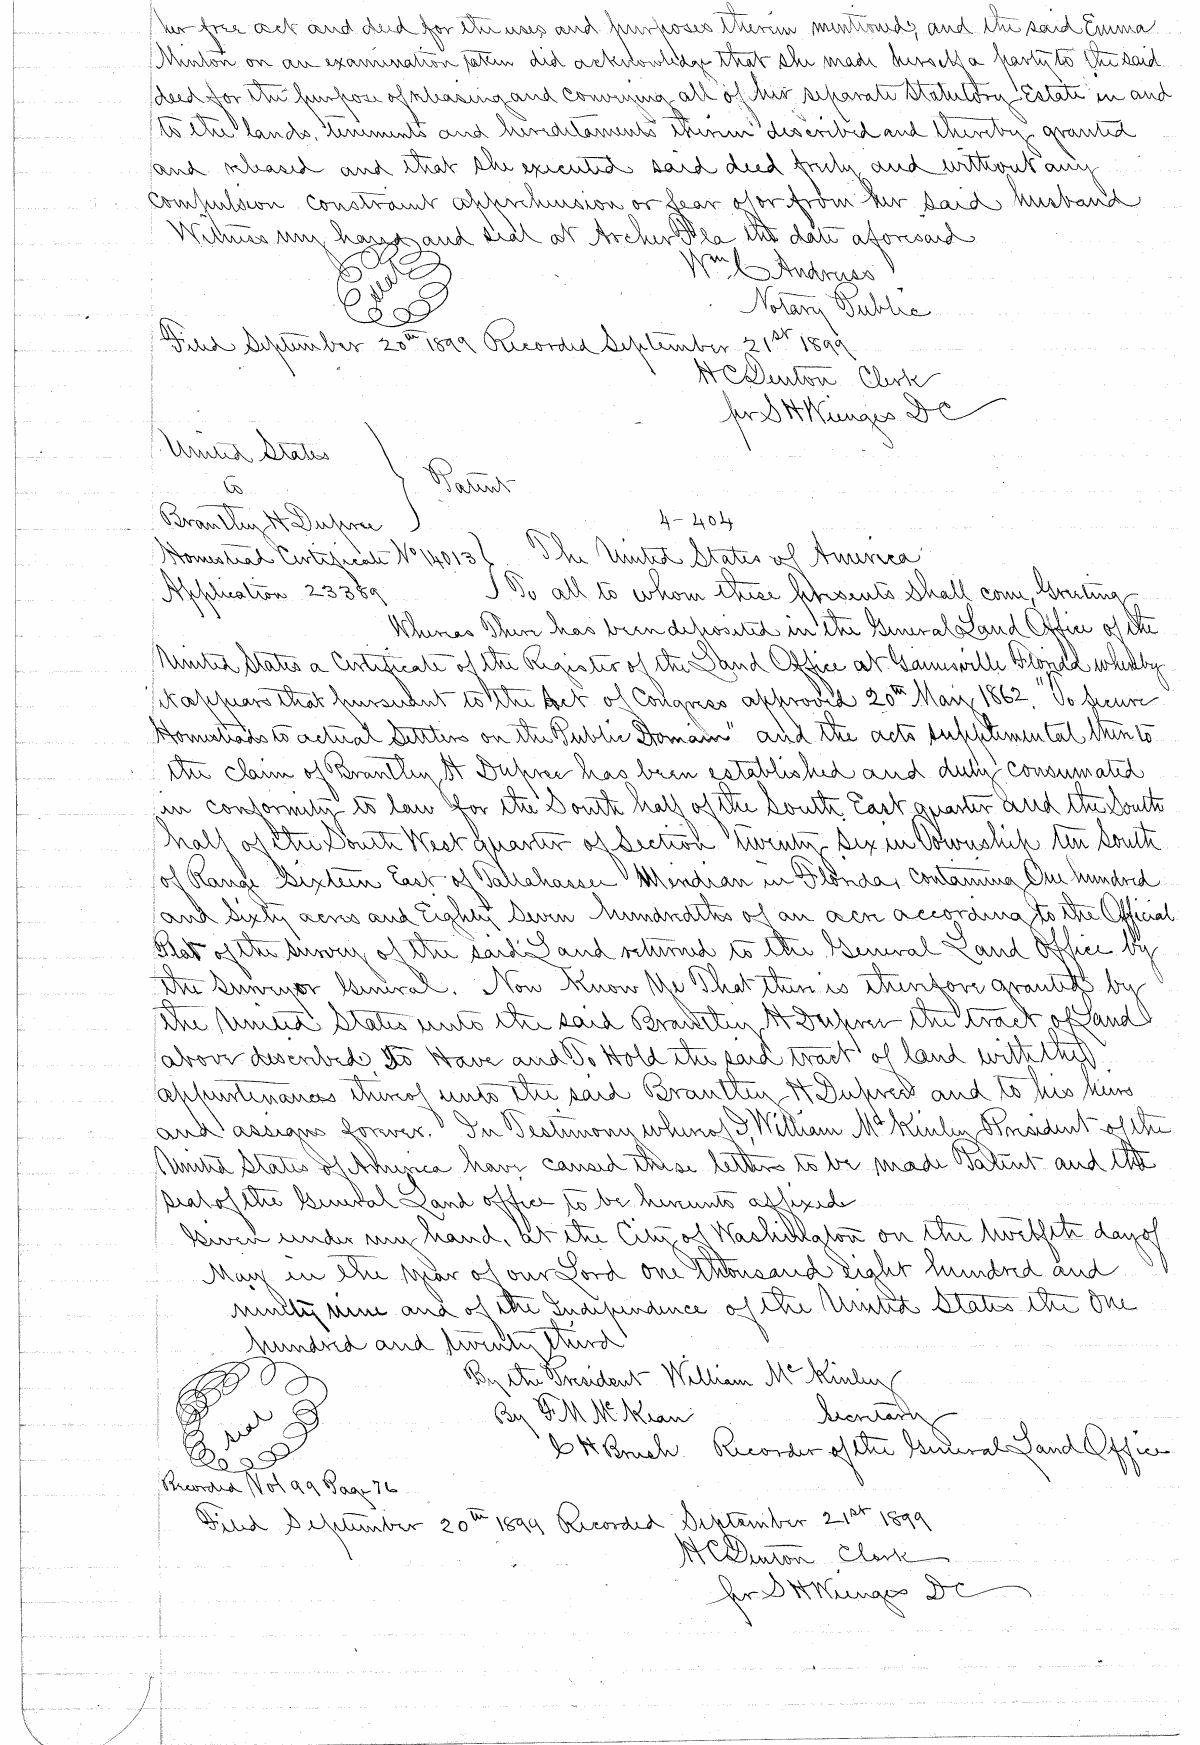 her free act and deed for the uses and purposes therein mentioned, and the said Emma
Minton on an examination taken did acknowledge that she made herself a party to the said
deed for the purpose of releasing and conveying all of her separate Statutory Estate in and
to the lands, tenements and hereditaments therein described and thereby granted
and released and that she executed said deed freely and without any
compulsion constraint apprehension or fear of or from her said husband
Witness my hand and seal at Archer Fla the date aforesaid
Seal
Wm C Andruss
Notary Public
Filed September 20th 1899 Recorded September 21st 1899
H C Denton Clerk
per S H Wienges D C
United States
to
Patent
Brantley H Dupree
4-404
Homestead Certificate No 14013 } The United States of America
Application 23389 } To all to whom these presents shall come, Greeting
Whereas There has been deposited in the General Land Office of the
United States a Certificate of the Register of the Land Office at Gainesville Florida whereby
it appears that pursuant to the Act of Congress approved 20th May 1862, "To secure
Homesteads to actual Settlers on the Public Domain" and the acts supplimental thereto
the claim of Brantley H Dupree has been established and duly consumated
in conformity to law for the South half of the South East quarter and the South
half of the South West quarter of Section twenty six in Township ten South
of Range Sixteen East of Tallahassee Meridian in Florida, containing One hundred
and Sixty acres and Eighty Seven hundredths of an acre according to the Official
Plat of the survey of the said Land returned to the General Land Office by
the Surveyor General. Now Know Ye That there is therefore granted by
the United States unto the said Brantley H Dupree the tract of Land
above described, To Have and To Hold the said tract of land with the
appurtenances thereof unto the said Brantley H Dupree and to his heirs
and assigns forever. In Testimony whereof I, William McKinley President of the
United States of America have caused these letters to be made Patent and the
seal of the General Land office to be hereunto affixed
Given under my hand, at the City of Washington on the twelfth day of
May in the year of our Lord one thousand eight hundred and
ninety nine and of the Independence of the United States the One
hundred and twenty third
By the President William McKinley
By F M McKean Secretary
Seal
C H Brush Recorder of the General Land Office
Recorded Vol 99 Page 76
Filed September 20th 1899 Recorded September 21st 1899
H C Denton Clerk
per S H Wienges D C